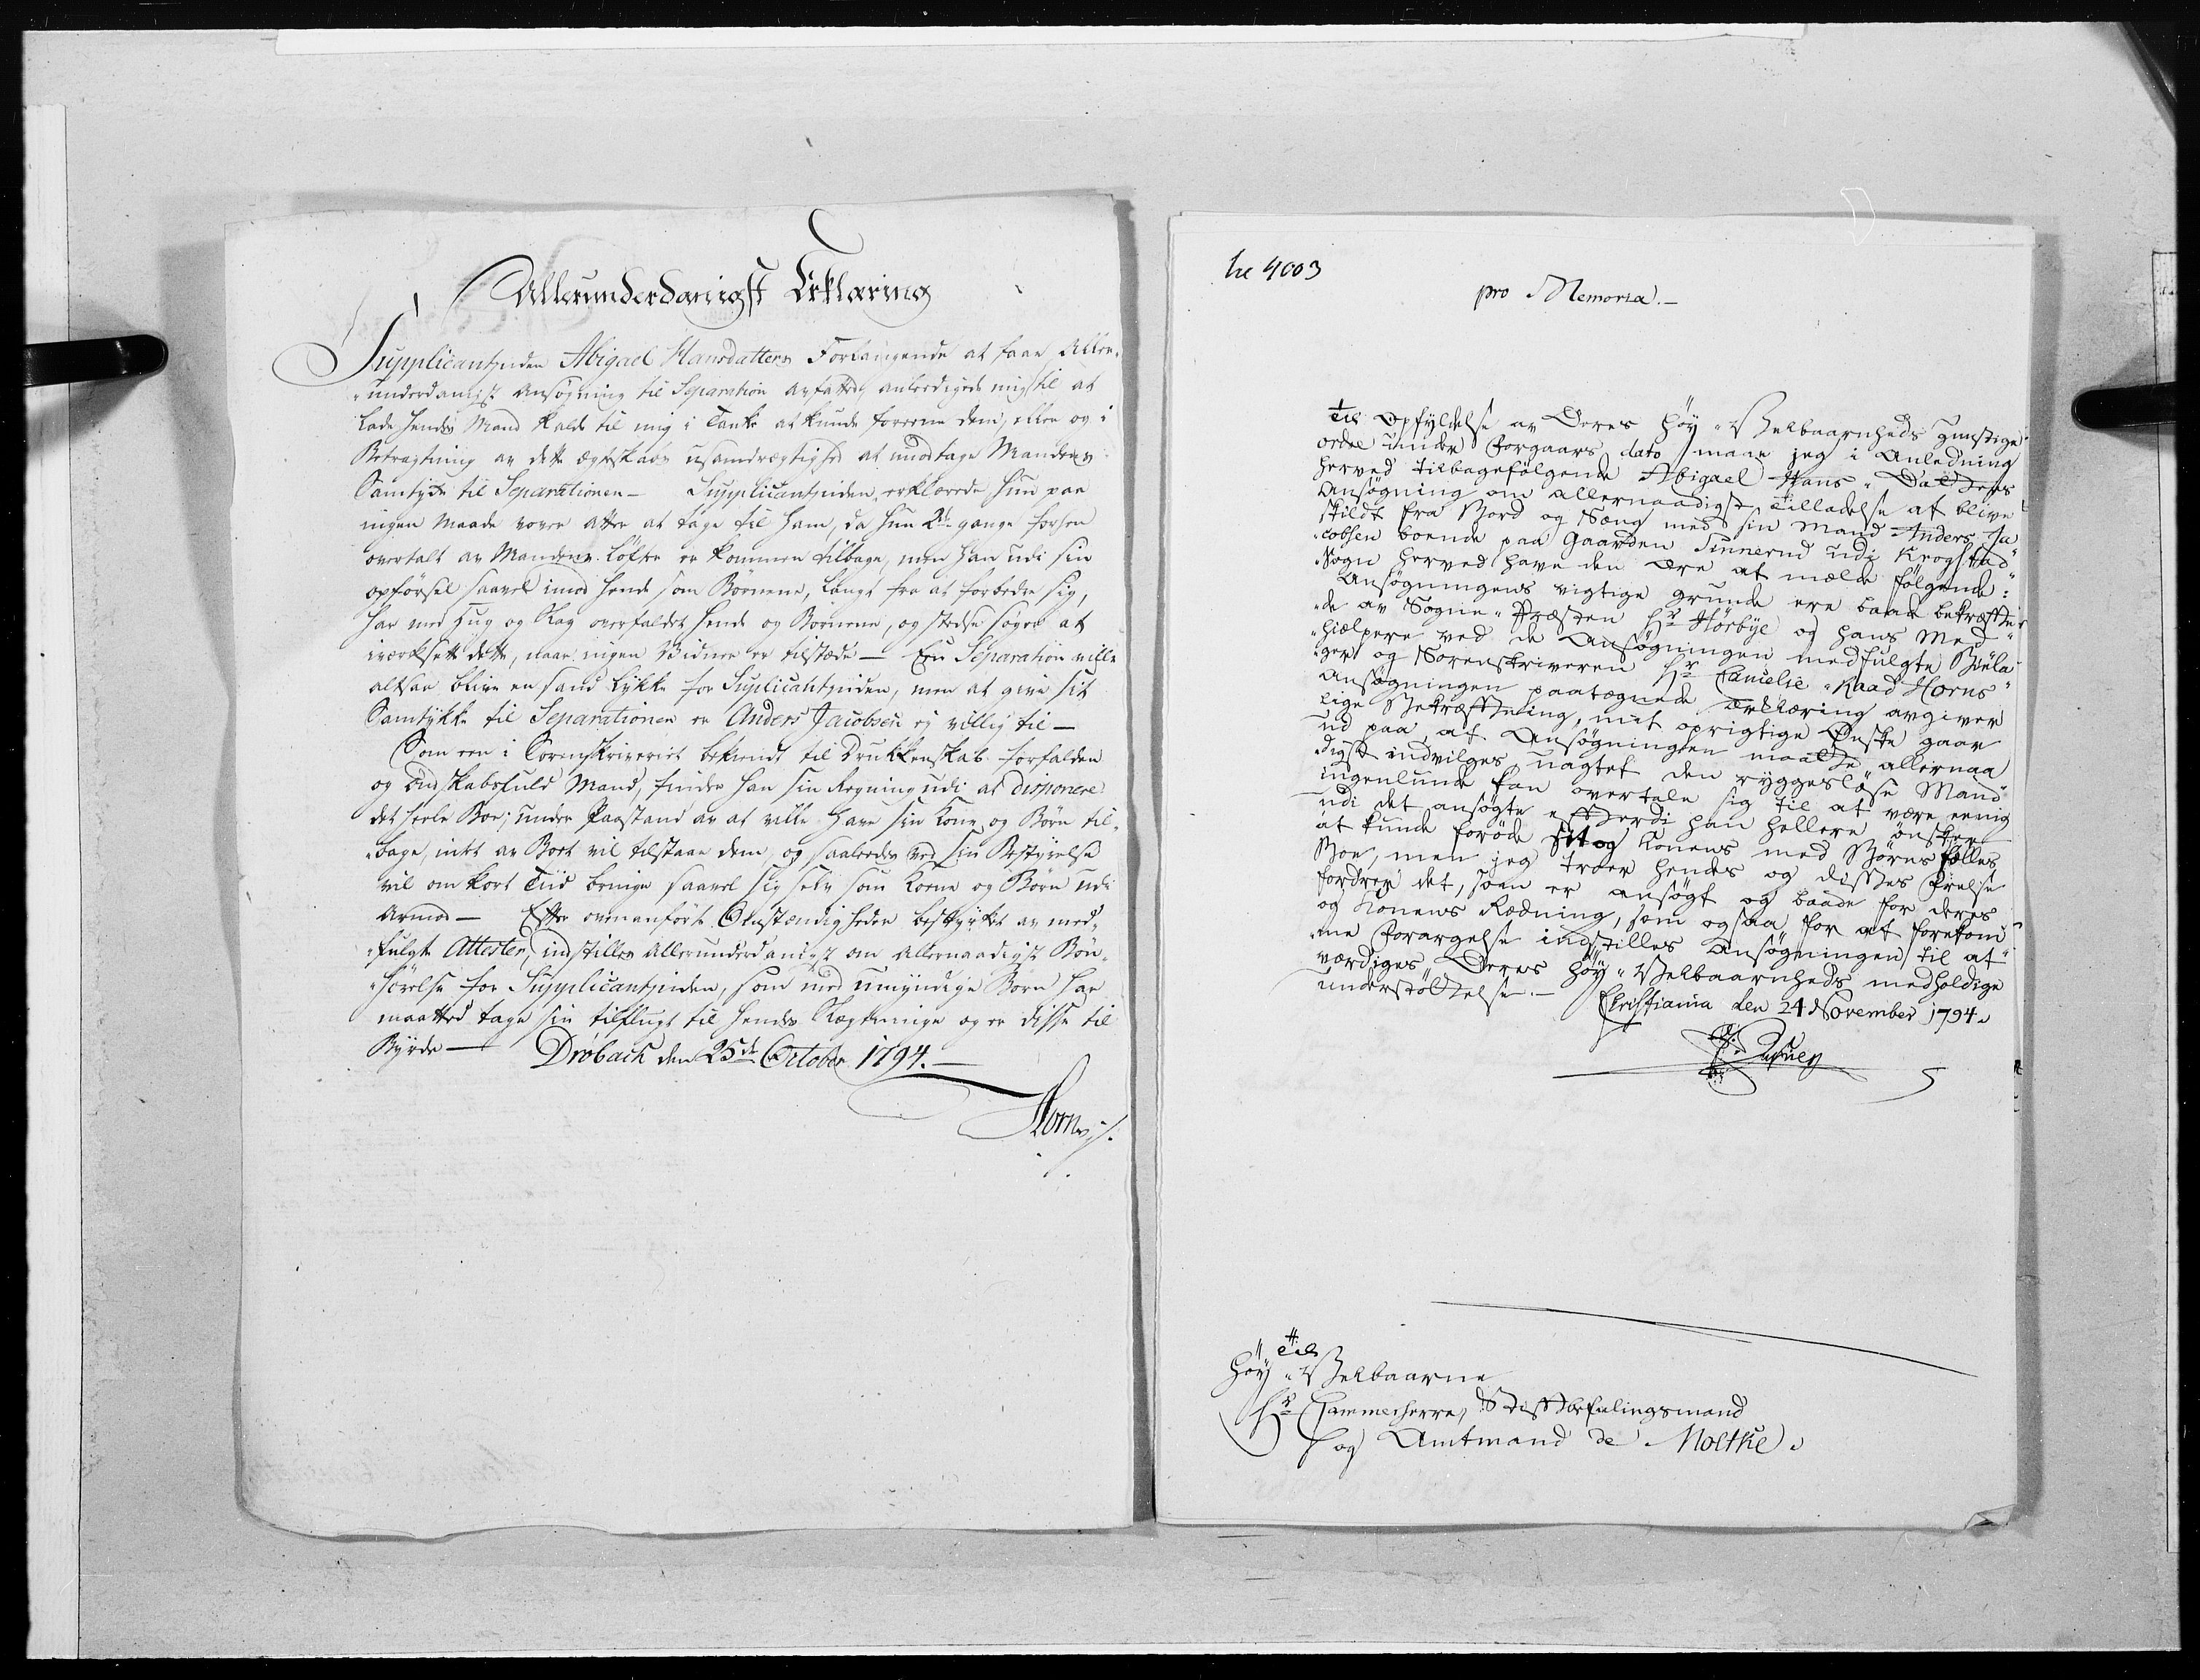 Allerunderdanigst Erklæring
Supplicantinden Abigael Hansdatters Forlangende at faae Aller„
„underdanigst Ansøgning til Separation avfatted, anledigede mig til at
lade hendes Mand kalde til mig i Tanke at kunde foreene dem, eller og i
Betragtning av dette ægteskabs usamdrægtighed at modtage Mandens
Samtyke til Separationen — Supplicantinden erklærede hun paa
ingen Maade vover atter at tage til ham, da hun 2de gange forhen
overtalt av Mandens Løfter er kommen tilbage, men han udi sin
opførsel saavel imod hende som Børnene, langt fra at forbedre sig,
har med hug og Slag overfaldet hende og Børnene, og stedse søger at
iverksette dette, naar ingen Vidner er tilstæde — En Separation ville
altsaa blive en sand Lykke for Suplicantinden, men at give sit
Samtykke til Separationen er Anders Jacobsen ej villig til —
Som een i Sorenskriveriet bekiendt til Drukkenskab forfalden
og Ondskabsfuld Mand, finder han sin Regning udi at disponere
det heele Boe; under Paastand av at ville have sin Kone og Børn til„
„bage, intet av Boet vil tilstaae dem, og saaledes ved sin Bestyrelse
vil om kort Tiid bringe saavel sig selv som Kone og Børn udi
Armod — Efter ovenanførte Omstændigheder bestyrket av med„
„fulgte Attester, indstilles Allerunderdanigst om Allernaadigst Bøn„
„hørelse for Supplicantinden, som med umyndige Børn har
maatted tage sin tilflugt til hendes Slægtninge og er disse til
Byrde — Drøbach den 25de October 1794. —
Horn
No 4003
pro Memoria. —
Til Opfyldelse av Deres Høy„Velbaarenheds gunstige
ordre under Forgaars dato maae jeg i Anledning
herved tilbagefølgende Abigael Hans„Datters
Ansøgning om allernaadigst Tilladelse at blive
skildt fra Bord og Seng med sin Mand Anders Ja„
„cobsen boende paa Gaarden Tinnerud udi Krogstad
Sogn herved have den Ære at melde følgende:
Ansøgningens vigtige grunde ere baade bekræfte„
„de av Sogne„Præsten Hr. Hørbye og hans Med„
„hiælpere ved de Ansøgningen medfulgte Biela„
„ger og Sorenskriveren Hr. Cancelie„Raad Horns
Ansøgningen paategnede Erklæring avgiver
lige Bekræftning, mit oprigtige Ønske gaar
ud paa, at Ansøgningen maatte allernaa„
„digst indvilges uagtet den ryggesløse Mand
ingenlunde kan overtale sig til at være eenig
udi det ansøgte efterdi han hellere ønsker
at kunde forøde sit og Konens med Børns fælles
Boe, men jeg troer hendes og disses Frelse
fordrer det, som er ansøgt og baade for deres
og Konens Redning, som ogsaa for at forekom„
„me Forargelse indstilles Ansøgningen til at
værdiges Deres Høy„Velbaarenheds medholdige
understøttelse. —
Christiania den 24 November 1794.
Til
Høy„Velbaarne
Hr. Cammerherre, Stiftbefalingsmand
og Amtmand de Moltke.